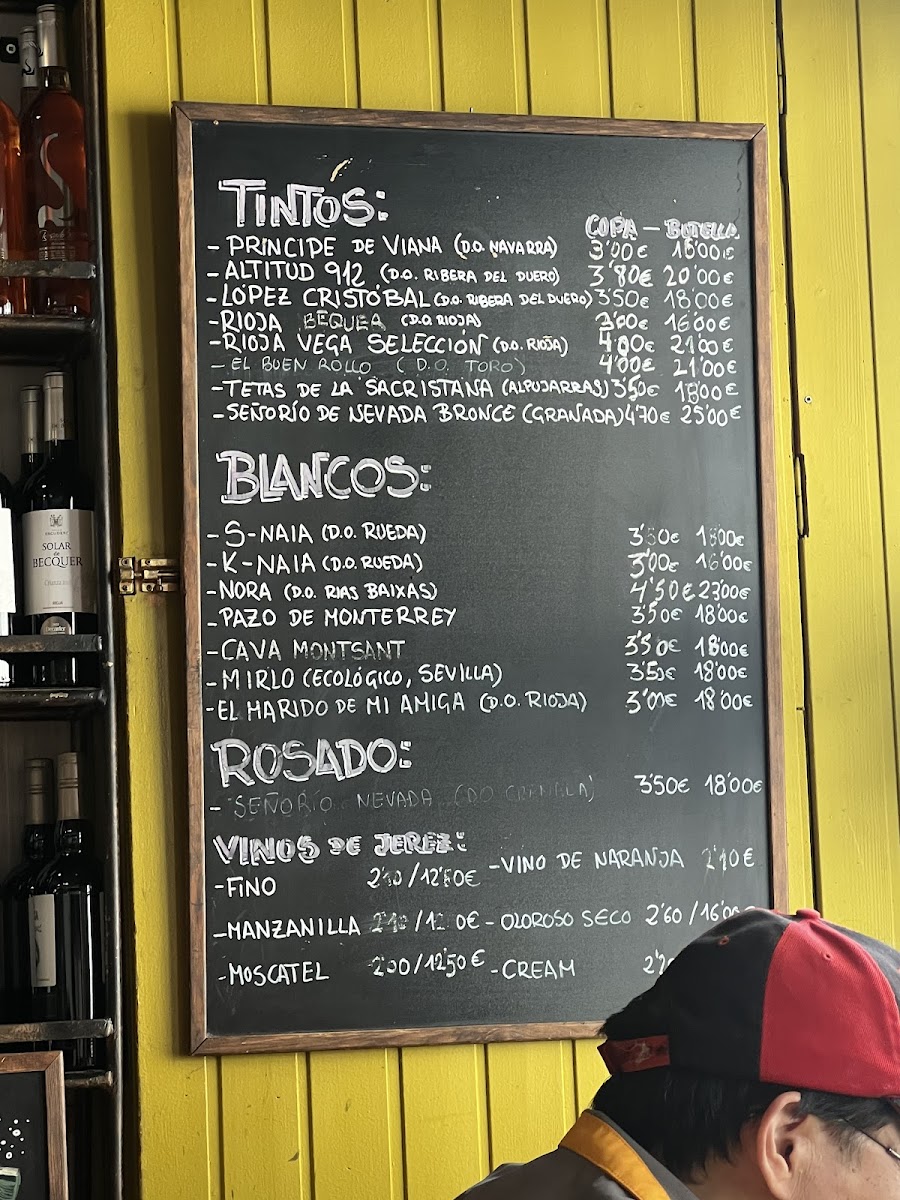 TINTOS:
COPA - BOTELLA
- PRINCIPE DE VIANA (D.O. NAVARRA) 3'00€ 16'00€
- ALTITUD 912 (D.O. RIBERA DEL DUERO) 3'80€ 20'00€
- LÓPEZ CRISTÓBAL (D.O. RIBERA DEL DUERO) 3'50€ 18'00€
- RIOJA BEQUER (D.O. RIOJA) 3'00€ 16'00€
- RIOJA VEGA SELECCIÓN (D.O. RIOJA) 4'00€ 21'00€
- EL BUEN ROLLO (D.O. TORO) 4'00€ 21'00€
- TETAS DE LA SACRISTANA (ALPUJARRAS) 3'50€ 18'00€
- SEÑORÍO DE NEVADA BRONCE (GRANADA) 4'70€ 25'00€
BLANCOS:
- S-NAIA (D.O. RUEDA) 3'50€ 18'00€
- K-NAIA (D.O. RUEDA) 3'00€ 16'00€
- NORA (D.O. RIAS BAIXAS) 4'50€ 23'00€
- PAZO DE MONTERREY 3'50€ 18'00€
- CAVA MONTSANT 3'50€ 18'00€
- MIRLO (ECOLÓGICO, SEVILLA) 3'50€ 18'00€
- EL MARIDO DE MI AMIGA (D.O. RIOJA) 3'00€ 18'00€
ROSADO:
- SEÑORÍO NEVADA (DO 3'50€ 18'00€
VINOS DE JEREZ:
- FINO
- VINO DE NARANJA 2'10€
- MANZANILLA
- OLOROSO SECO 2'60 / 16'00€
- MOSCATEL 2'00 / 12'50€
- CREAM
SOLAR
de
BECQUER